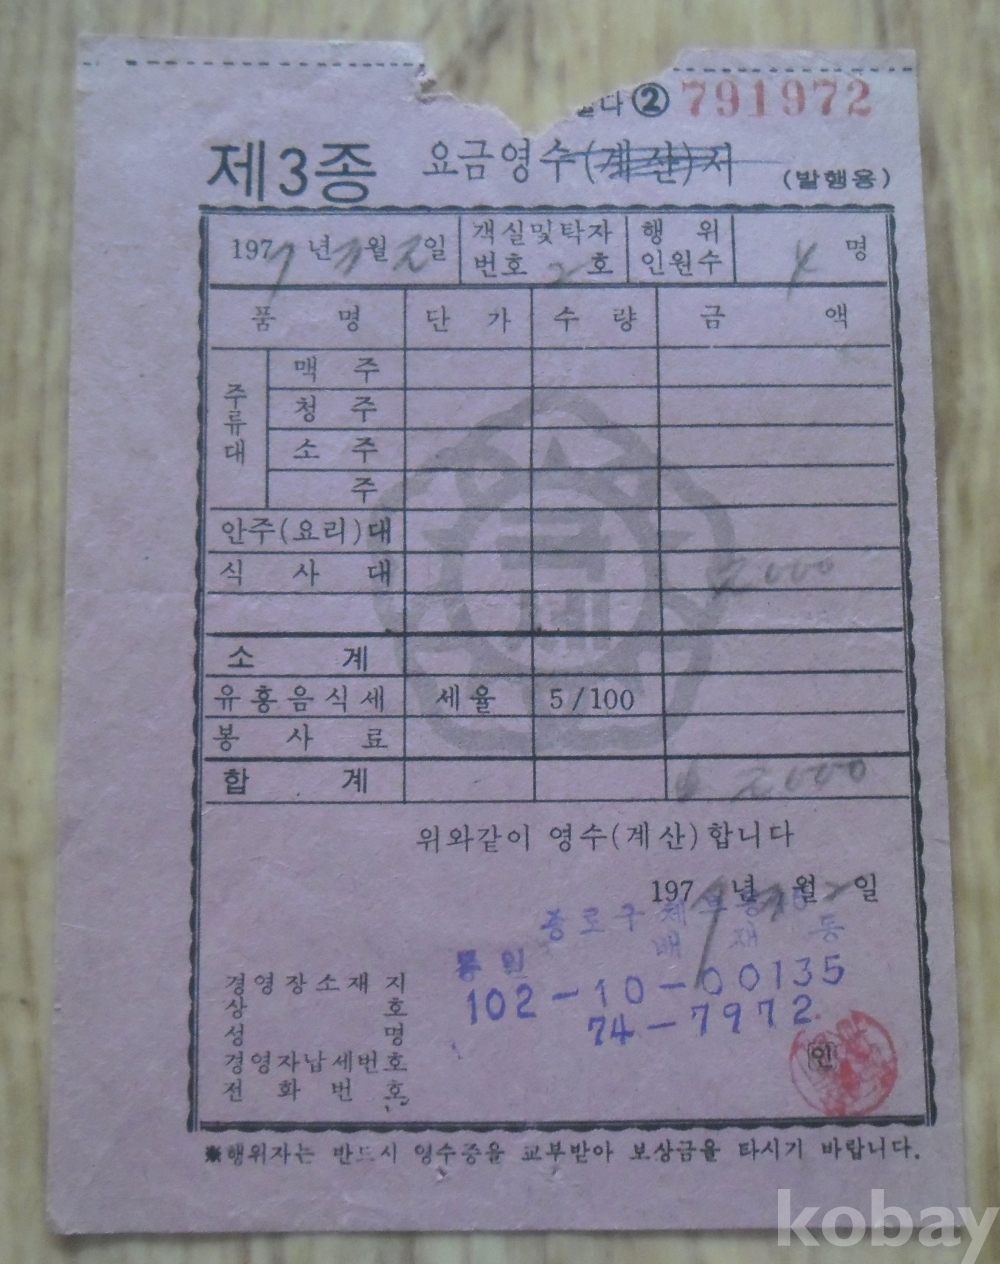 ② 791972
제3종 요금영수(계산)서 (발행용)
1977년 3월 2일 객실및탁자번호 2호 행위인원수 4명
품명 단가 수량 금액
주류대
맥주
청주
소주
주
안주(요리)대
식사대 2000
소계
유흥음식세 세율 5/100
봉사료
합계 2000
위와같이 영수(계산)합니다
1977년 3월 2일
종로구 체부동
배재동
통인
102-10-00135
74-7972
경영장소재지
상호
성명
경영자납세번호
전화번호
인
※행위자는 반드시 영수증을 교부받아 보상금을 타시기 바랍니다.
kobay